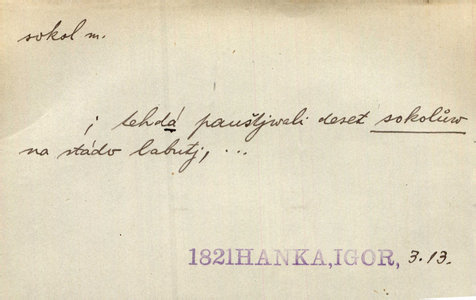 sokol m.
; tehdá paustjwali deset sokolůw
na stádo labutj, ...
1821HANKA,IGOR, 3.13.